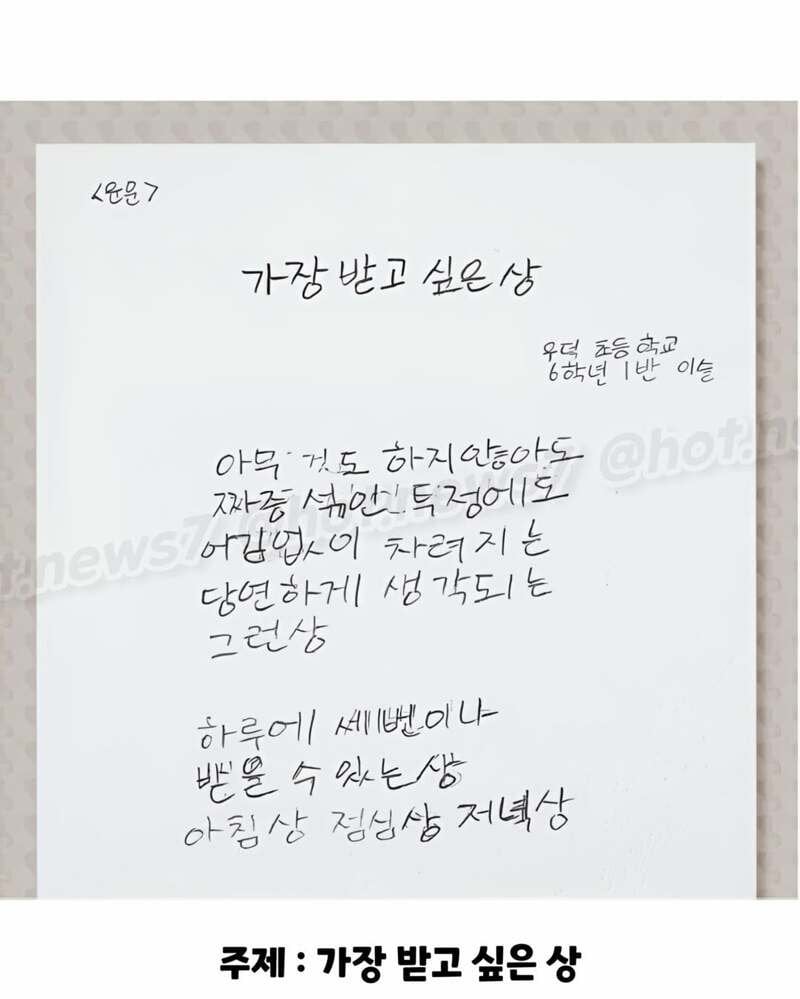 <운문>
가장 받고 싶은 상
우덕 초등학교
6학년 1반 이슬
아무 것도 하지않아도
짜증 섞인 투정에도
어김없이 차려지는
당연하게 생각되는
그런상
하루에 세번이나
받을 수 있는 상
아침상 점심상 저녁상
@hot.news7 @hot.ne
t.news7
주제 : 가장 받고 싶은 상